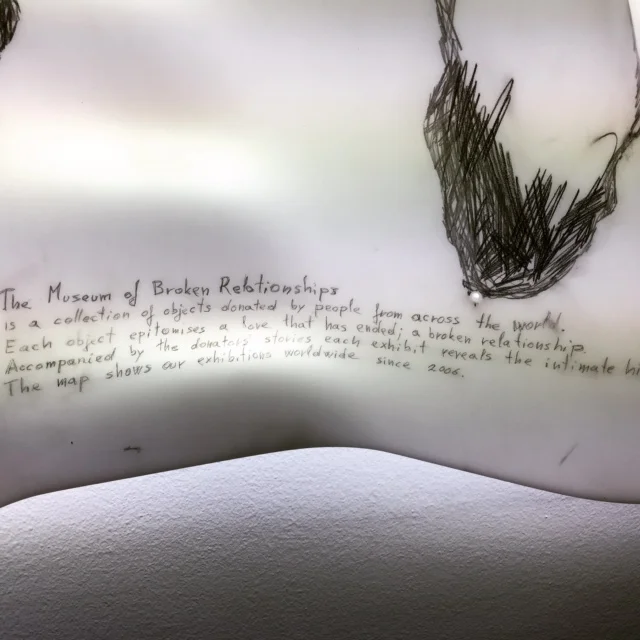 The Museum of Broken Relationships
is a collection of objects donated by people from across the world.
Each object epitomises a love that has ended; a broken relationship.
Accompanied by the donators' stories each exhibit reveals the intimate
The map shows our exhibitions worldwide since 2006.